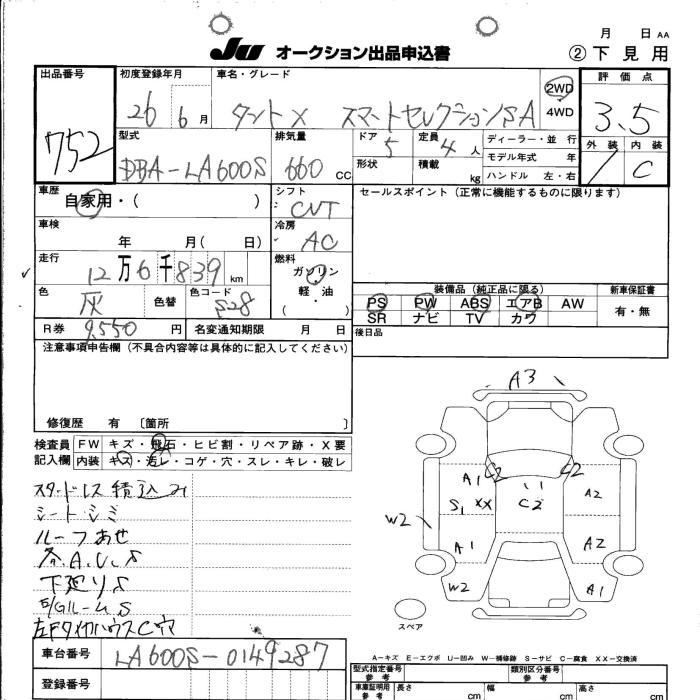 月 日 AA
JU オークション出品申込書 ②下見用
出品番号 初度登録年月 車名・グレード 評価点
752 26 6月 タント X スマートセレクションSA 2WD 4WD 3.5
型式 排気量 ドア 定員 ディーラー・並行 外装 内装
DBA-LA600S 660 CC 5 4人 モデル年式 年 C
形状 積載 kg ハンドル 左・右
車歴 シフト セールスポイント(正常に機能するものに限ります)
自家用・( ) CVT
車検 冷房
年 月( 日) AC
走行 燃料
12万6千839km ガソリン・軽・油 ( )
色 色替 色コード 装備品(純正品に限る) 新車保証書
灰 S28 PS PW ABS エアB AW 有・無
SR ナビ TV カワ
R券 9,550円 名変通知期限 月 日 後日品
注意事項申告欄(不具合内容等は具体的に記入してください)
修復歴 有 〔箇所 〕
検査員 FW キズ・飛石・ヒビ割・リペア跡・X要
記入欄 内装 キズ・汚レ・コゲ・穴・スレ・キレ・破レ
スタッドレス積込み
シートシミ
ルーフあせ
各A.U.S
下廻りS
E/GルームS
左Fタイヤハウス C穴
A3
A1 C2 C2 A2
S1 XX C2
W2 A1 A2
W2 A1
スペア
A-キズ E-エクボ U-凹み W-補修跡 S-サビ C-腐食 XX-交換済
車台番号 LA600S-0149287
型式指定番号 参考 類別区分番号 参考
登録番号 車庫証明用 参考 長さ cm 幅 cm 高さ cm